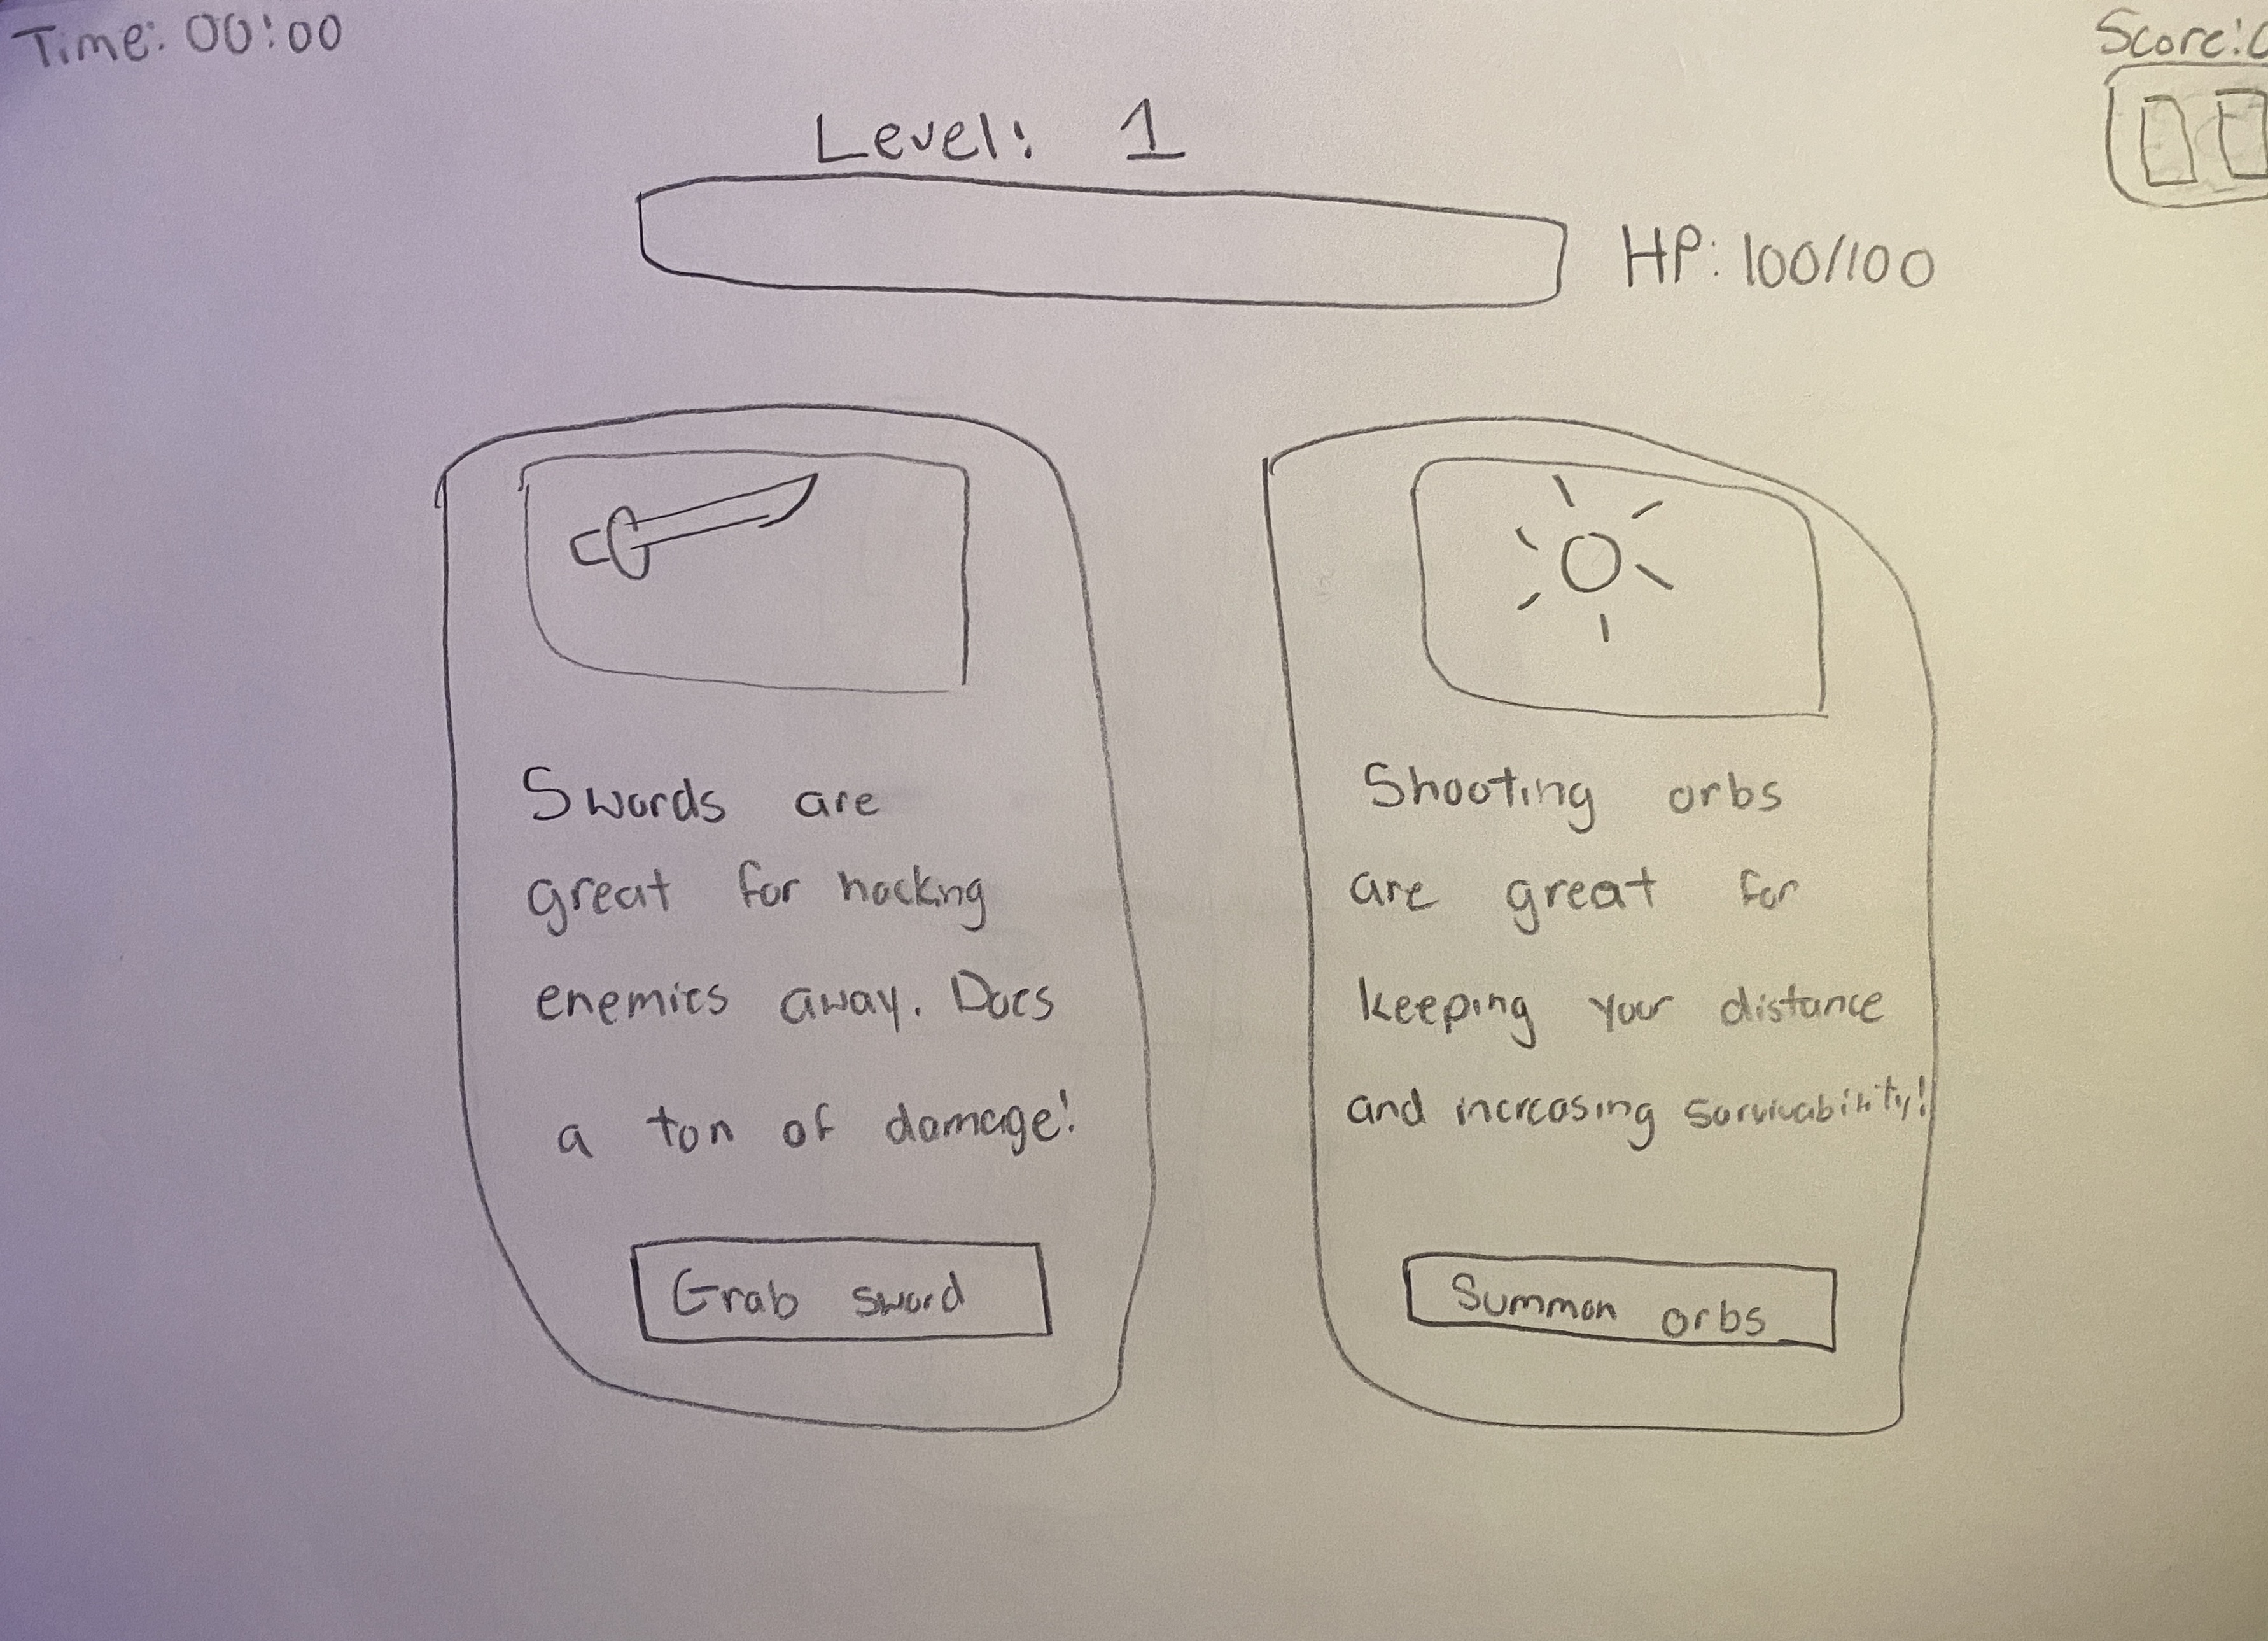 Time: 00:00
Score:
Level: 1
HP: 100/100
Swords are
great for hacking
enemies away. Does
a ton of damage!
Grab sword
Shooting orbs
are great for
keeping your distance
and increasing survivability!
Summon orbs